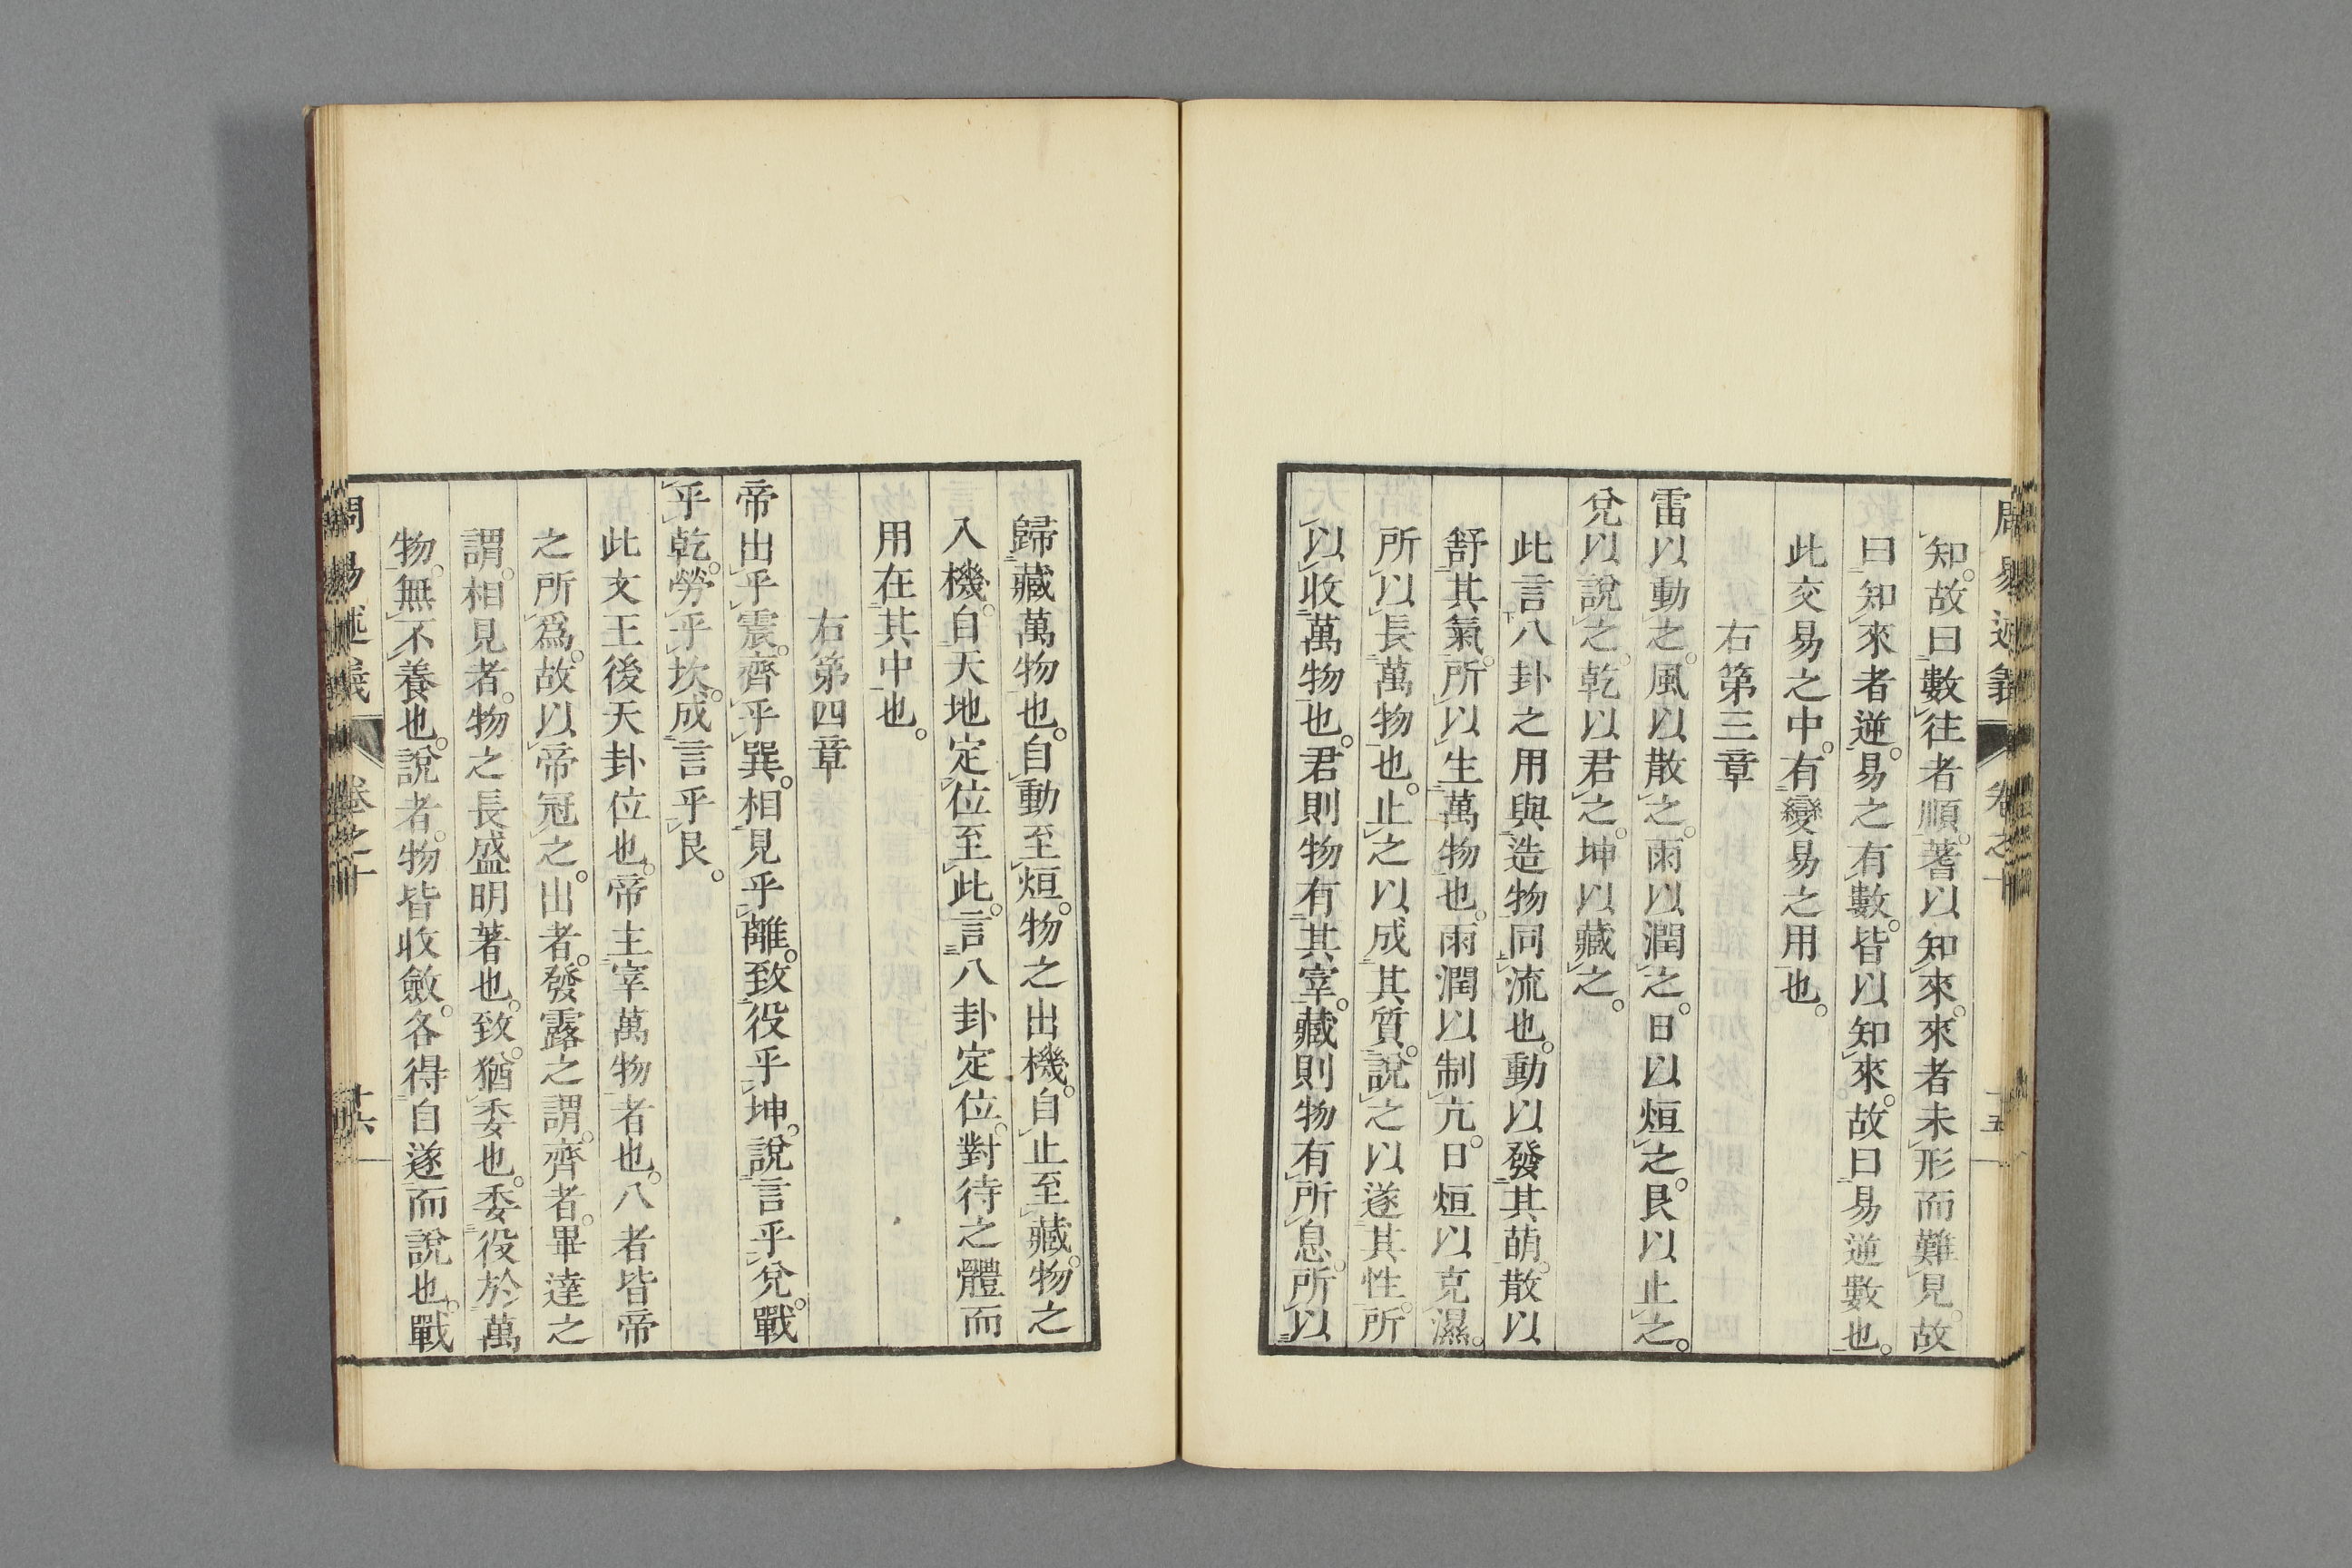 周易述義 卷之十 十五
知。故曰數往者順。蓍以知來。來者未形而難見。故
曰知來者逆。易之有數。皆以知來。故曰易逆數也。
此交易之中。有變易之用也。
右第三章
雷以動之。風以散之。雨以潤之。日以烜之。艮以止之。
兌以說之。乾以君之。坤以藏之。
此言八卦之用與造物同流也。動以發其萌。散以
舒其氣。所以生萬物也。雨潤以制亢。日烜以克濕。
所以長萬物也。止之以成其質。說之以遂其性。所
以收萬物也。君則物有其宰。藏則物有所息。所以
歸藏萬物也。自動至烜。物之出機。自止至藏。物之
入機。自天地定位至此。言八卦定位。對待之體而
用在其中也。
右第四章
帝出乎震。齊乎巽。相見乎離。致役乎坤。說言乎兌。戰
乎乾。勞乎坎。成言乎艮。
此文王後天卦位也。帝主宰萬物者也。八者皆帝
之所爲。故以帝冠之。出者。發露之謂。齊者。畢達之
謂。相見者。物之長盛明著也。致。猶委也。委役於萬
物。無不養也。說者。物皆收斂。各得自遂而說也。戰
周易述義 卷之十 十六